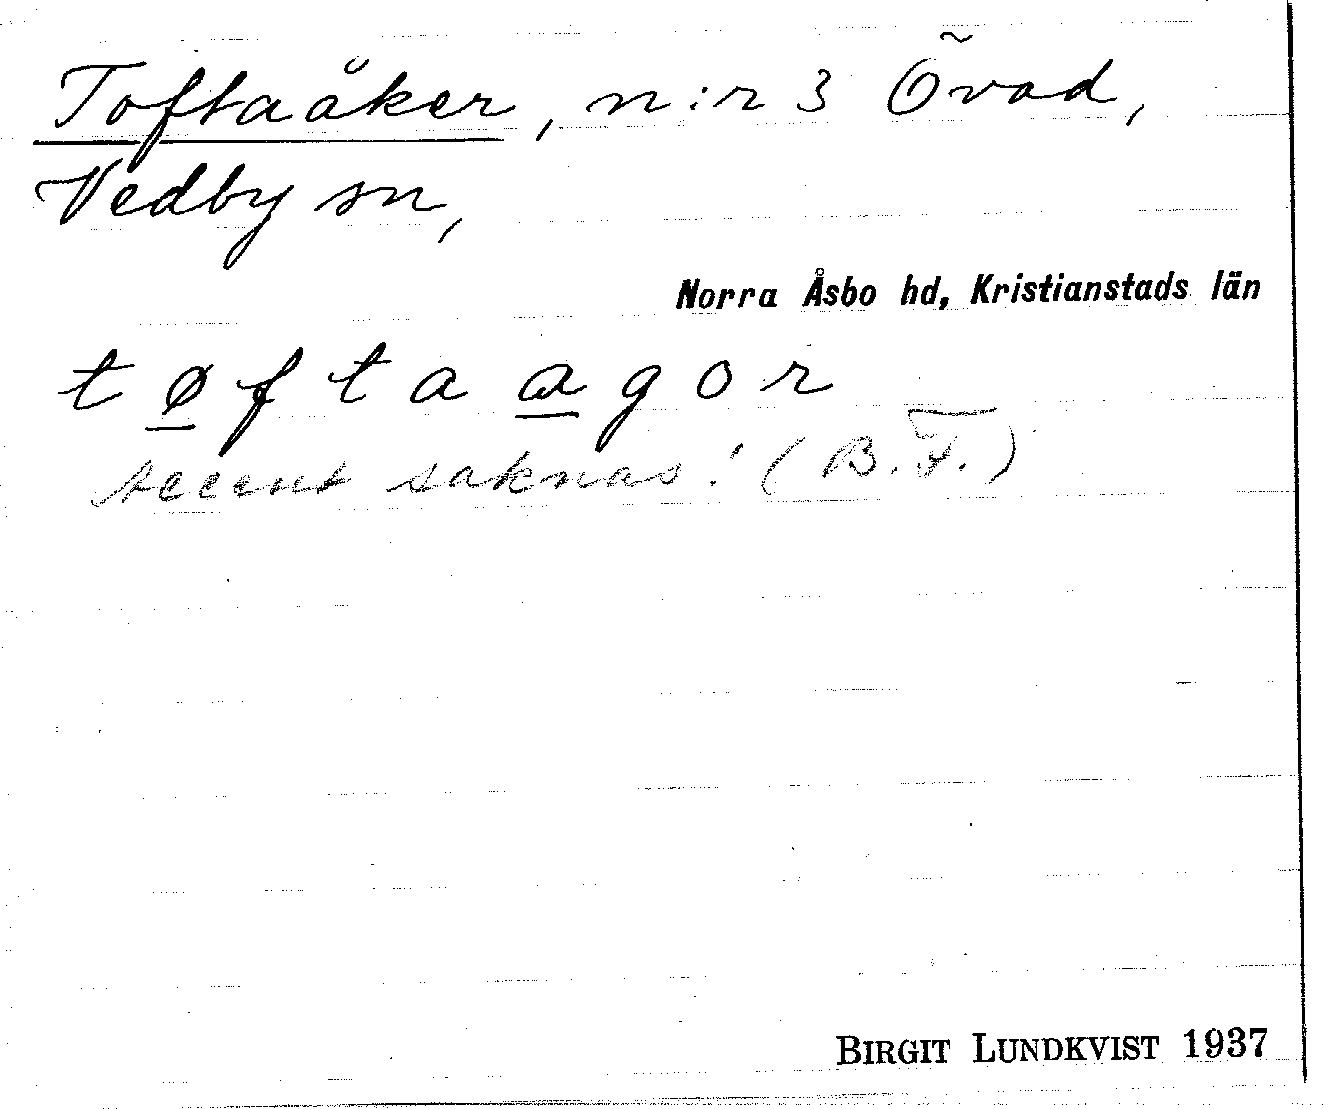 Toftaåker, n:r 3 Övad,
Vedby sn,
Norra Åsbo hd, Kristianstads län
t ø f t a a g o r
accent saknas! (B.F.)
BIRGIT LUNDKVIST 1937